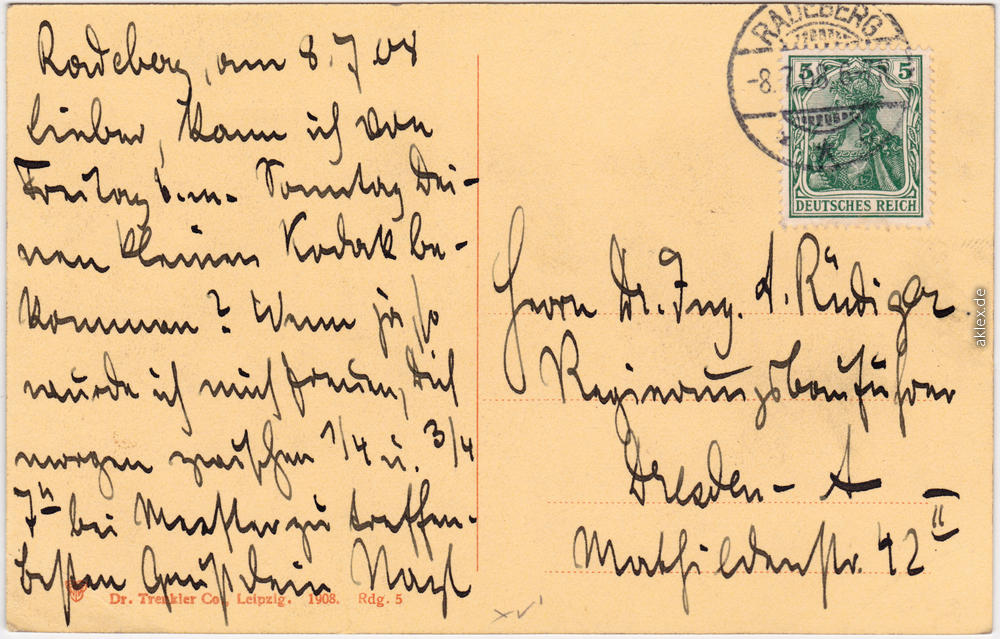 Radeberg, am 8.7.08
Lieber, kann ich von
Freitag b.m. Sonntag Dei-
nen kleinen Kodak be-
kommen? Wenn ja, so
würde ich mich freuen, Dich
morgen zwischen 1/4 u. 3/4
7h bei Meester zu treffen.
besten Gruß dein
Dr. Trenkler Co., Leipzig. 1908. Rdg. 5
RADEBERG
-8.7.08.6-
5 5
DEUTSCHES REICH
Herrn Dr. Ing. A. Rüdiger
Regierungsbauführer
Dresden - A
Mathildenstr. 42 II
aklex.de